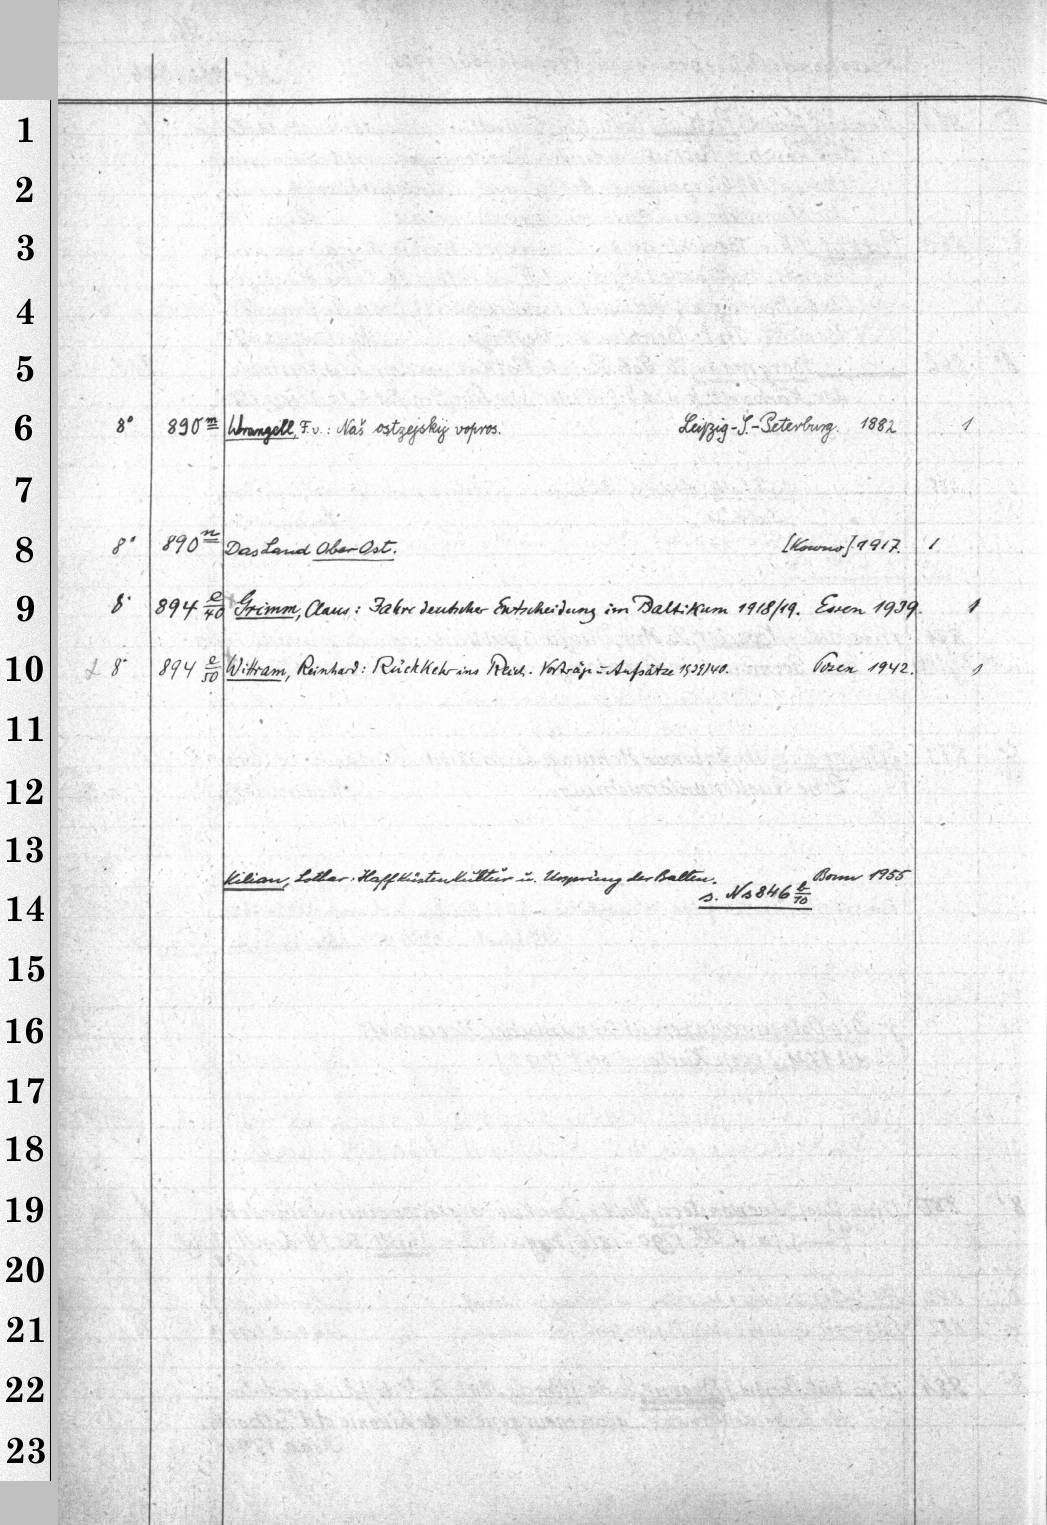 1
2
3
4
5
6 8° 890 m Wrangell, F. v.: Naš ostzejskij vopros. Leipzig-S.-Peterburg. 1882 1
7
8 8° 890 n Das Land Ober-Ost. [Kowno] 1917. 1.
9 8° 894 e/40 Grimm, Claus: Jahre deutscher Entscheidung im Baltikum 1918/19. Essen 1939. 1
10 8° 894 e/50 Wittram, Reinhard: Rückkehr ins Reich. Vorträge u. Aufsätze 1939/40. Posen 1942. 1
11
12
13
Kilian, Lothar: Haffküstenkultur u. Ursprung der Balten. Bonn 1955
14 s. Ns 846 b/10
15
16
17
18
19
20
21
22
23